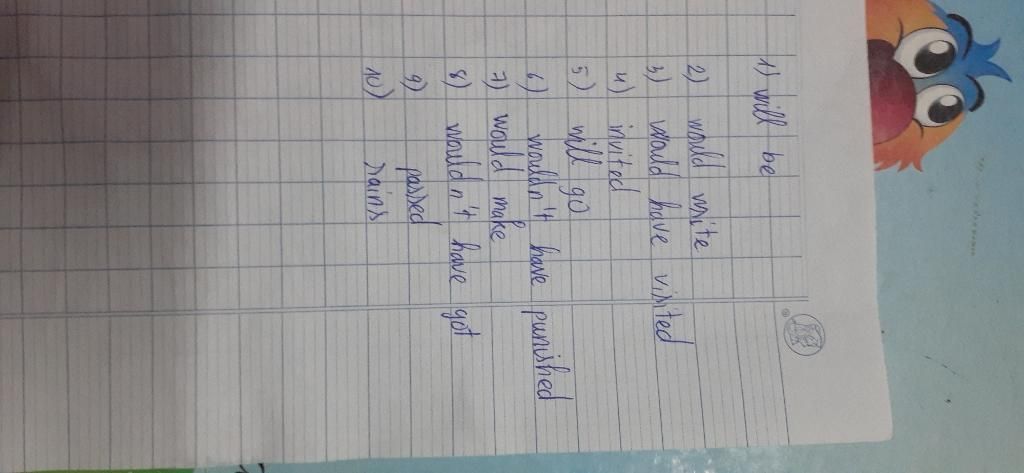 1) will be
2) would write
3) would have visited
4) invited
5) will go
6) wouldn't have punished
7) would make
8) wouldn't have got
9) passed
10) rains